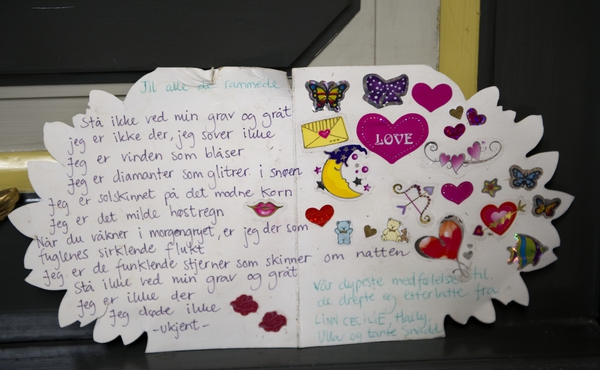 Til alle de rammede
Stå ikke ved min grav og gråt
jeg er ikke der, jeg sover ikke
Jeg er vinden som blåser
Jeg er diamanter som glitrer i snøen
Jeg er solskinnet på det modne korn
Jeg er det milde høstregn
Når du våkner i morgengryet, er jeg der som
fuglenes sirklende flukt
Jeg er de funklende stjerner som skinner om natten
Stå ikke ved min grav og gråt
Jeg er ikke der
Jeg døde ikke
-ukjent-
LOVE
Vår dypeste medfølelse til
de drepte og etterlatte fra
LINN CECILIE,
Ulla og tante